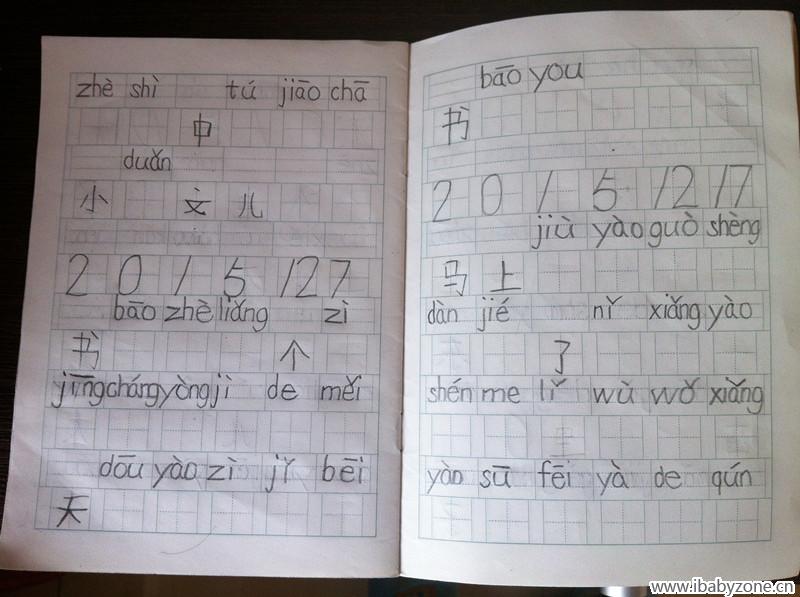 zhè shì tú jiāo chā
中
duǎn
小 文 儿
2 0 1 5 12 7
bāo zhè liǎng zì
书 个
jīng cháng yòng jì de měi
dōu yào zì jǐ bēi
天
bāo you
书
2 0 1 5 12 17
jiù yào guò shèng
马 上
dàn jié nǐ xiǎng yào
了
shén me lǐ wù wǒ xiǎng
yào sū fēi yà de qún
www.ibabyzone.cn